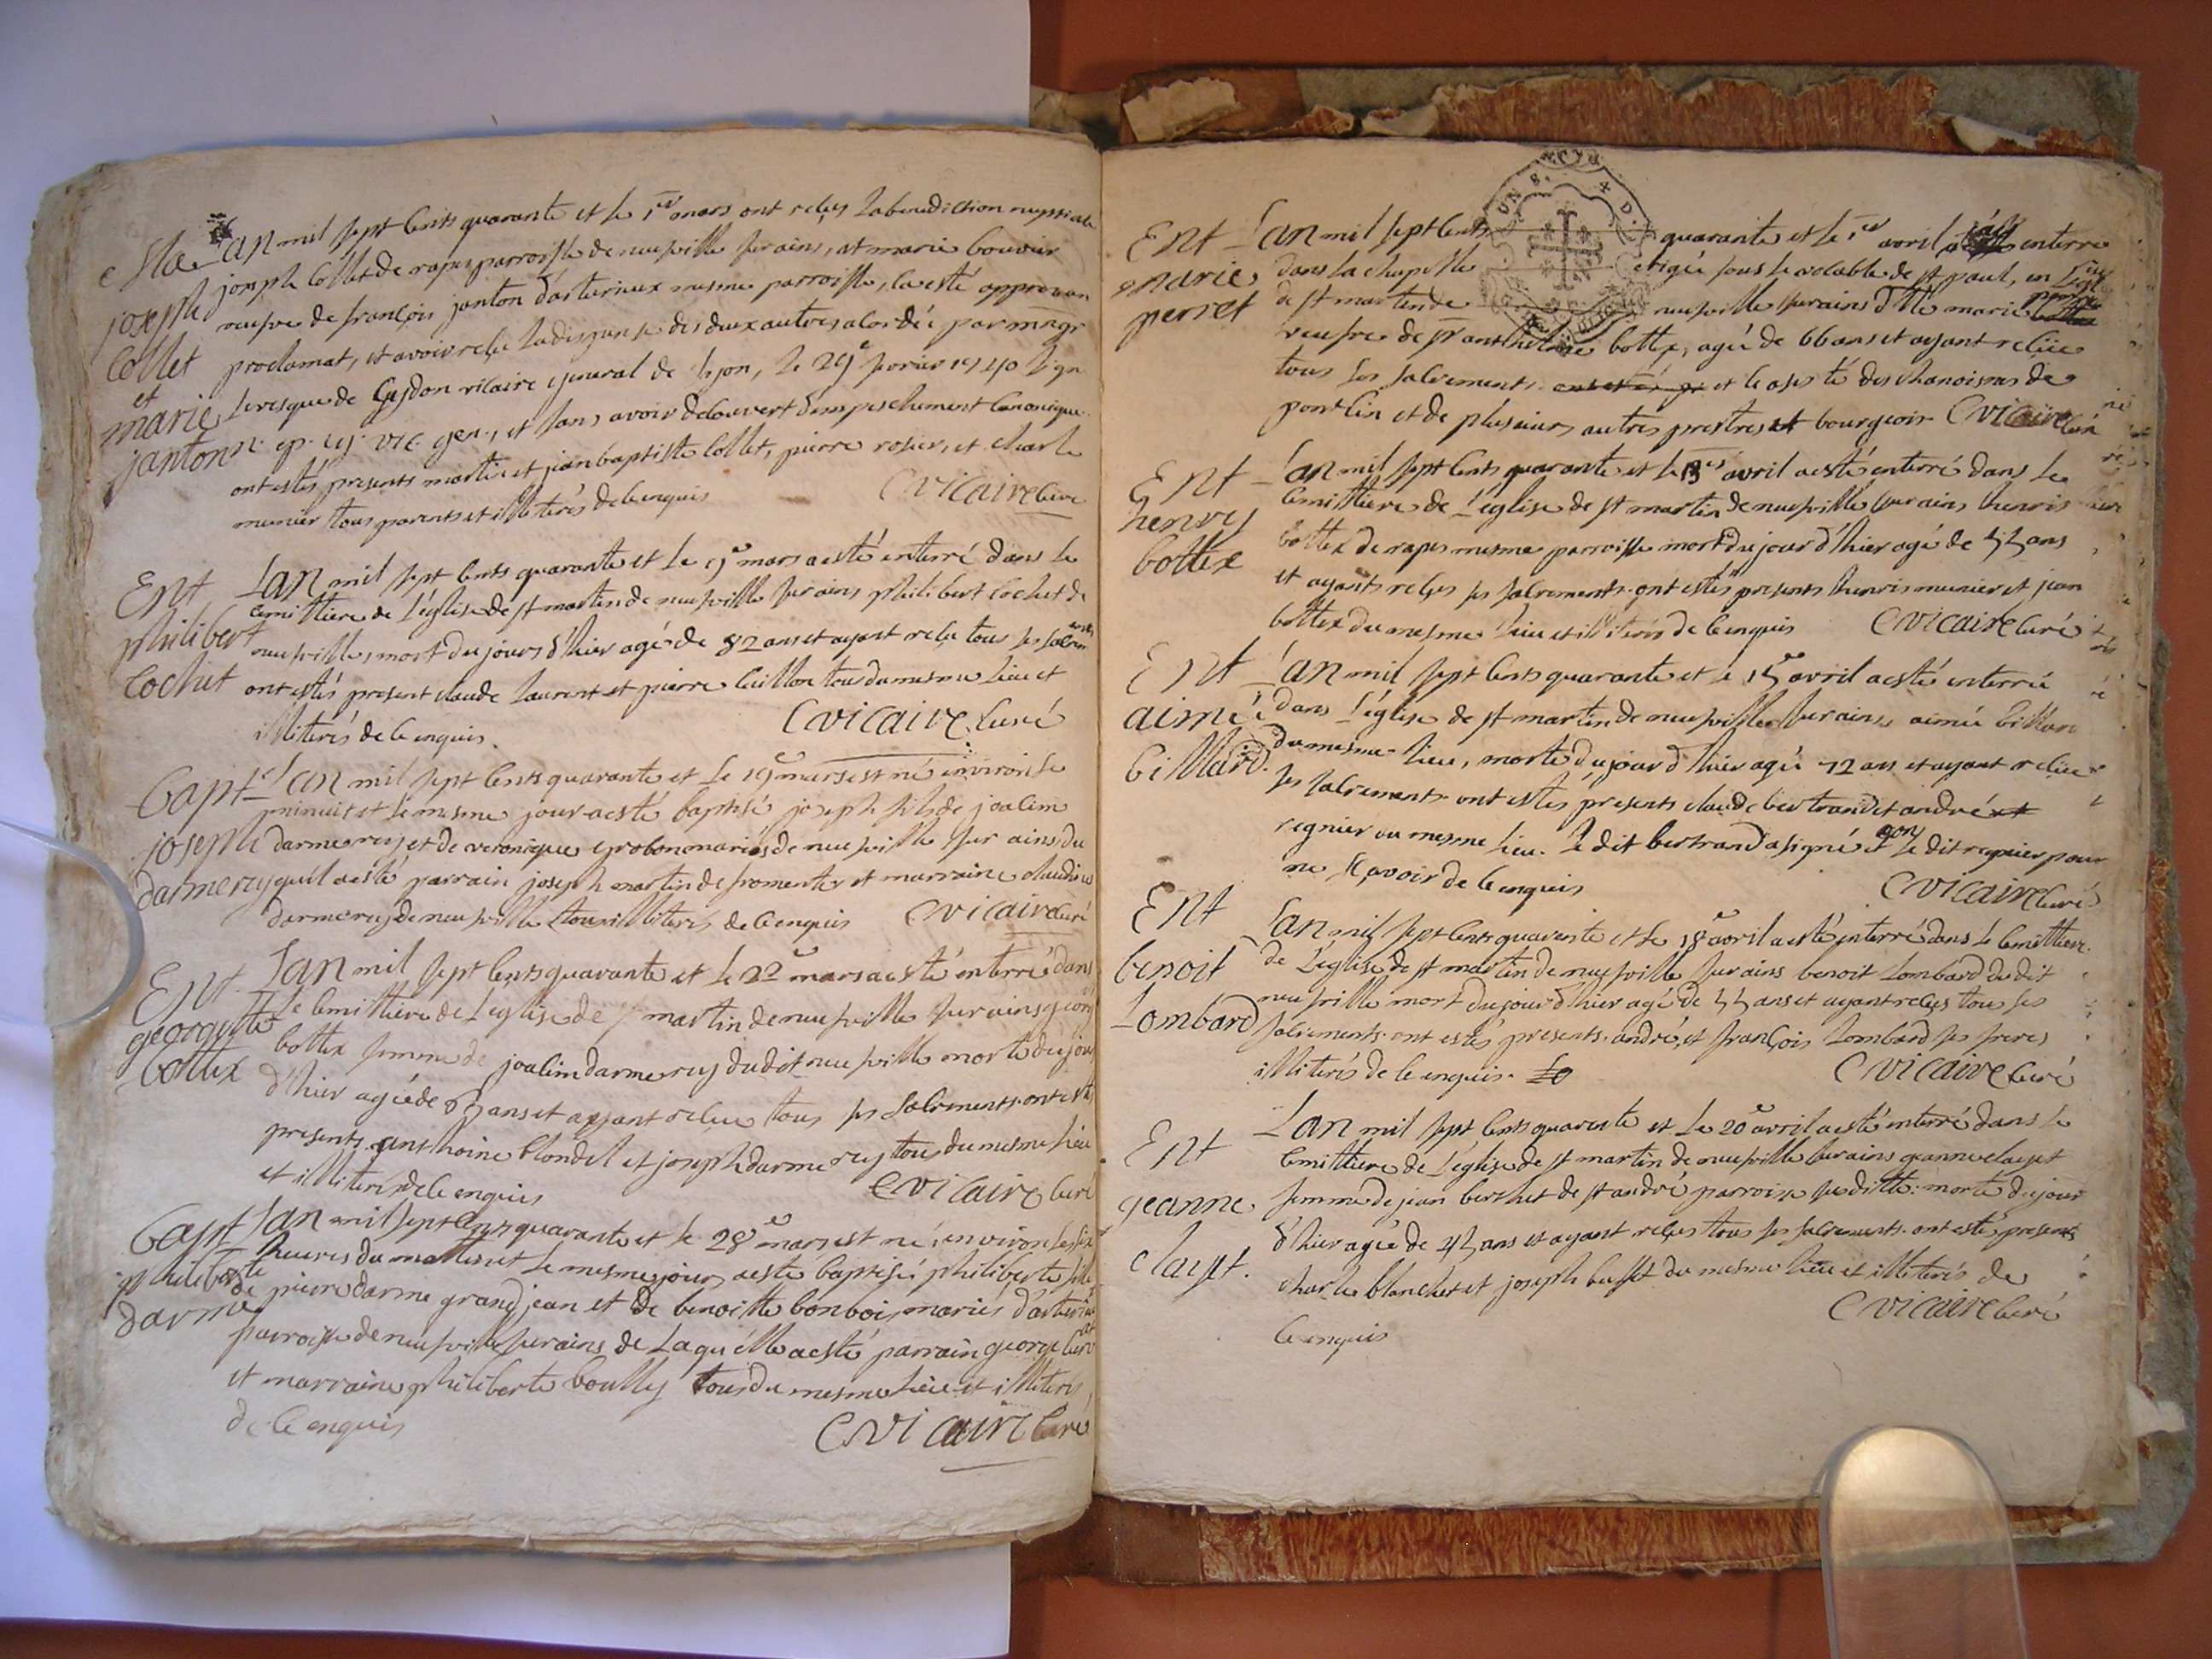 Lan mil sept cents quarante et le 1er mars ont reçus la benediction nuptiale
joseph Collet de rapes parroisse de neufville sur ains, et marie bouvier
veufve de françois janton d'arterieux mesme parroisse, la esté
proclamat, et avoir reçu la dispense des deux autres acordée par
de lyon, le 29e
vic. gen., et sans avoir decouvert d'empeschement canonique
ont estés presents martin et jean baptiste Collet, pierre rosier, et charle
munier tous parents et illiterés de ce enquis
C vicaire curé
joseph
Collet
et
marie
janton
Ent
philibert
Cochet
Lan mil sept cents quarante et le 9e mars a esté enterré dans le
cemittiere de l'église de st martin de neufville sur ains philibert Cochet de
neufville, mort du jours d'hier agé de 82 ans et ayant reçu tous ses
ont estés present claude laurent et pierre Cuillon tous du mesme lieu et
illiterés de ce enquis.
C vicaire curé
Bapt
joseph
darmerey
Lan mil sept cents quarante et le 19e mars est né environ le
minuit et le mesme jour a esté baptisé joseph fils de joacim
darmerey et de veronique mariés de neufville sur ains du
quil a esté parrain joseph martin de fromentes et marraine
darmerey de neufville tous illiterés de ce enquis
C vicaire curé
Ent
georgette
bottex
Lan mil sept cents quarante et le 22e mars a esté enterré dans
le cemittiere de L'eglise de st martin de neufville sur ains
bottex femme de joacim darmerey dudit neufville morte du jour
d'hier agée de ans et ayant reçue tous ses sacrements ont estés
presents anthoine blondel et joseph darmerey tous du mesme lieu
et illiterés de ce enquis
C vicaire curé
Bapt
philiberte
darme
Lan mil sept cents quarante et le 28e mars est né environ les six
heures du matin et le mesme jour a esté baptisée philiberte fille
de pierre darme grandjean et de benoitte bonbois mariés
parroisse de neufville sur ains de laquelle a esté parrain george
et marraine philiberte boully tous du mesme lieu et illiterés
de ce enquis
C vicaire curé
Ent
marie
perret
Lan mil sept cents quarante et le 1er avril enterré
dans la chapelle erigée sous le vocable de st paul, en
de st martin de neufville sur ains marie
veufve de anthelme bottex, agée de 66 ans et ayant reçüe
tous ses sacrements et le asisté des chanoines de
pontlin et de plusieurs autres prestres et bourgeois
C vicaire curé
Ent
henry
bottex
Lan mil sept cents quarante et le 13e avril a esté enterré dans le
cemittiere de L'église de st martin de neufville sur ains henris
bottex de rapes mesme parroisse mort du jour d'hier agé de 55 ans
et ayants reçus ses sacrements. ont estés presents henris munier et jean
bottex du mesme lieu et illiterés de ce enquis
C vicaire curé
Ent
aimée
billard.
Lan mil sept cents quarante et le 15e avril a esté enterrée
dans L'église de st martin de neufville sur ains, aimée
du mesme lieu, morte du jour d'hier agée 72 ans et ayant reçüe
ses sacrements ont estés présents claude bertrand et andré
regnier du mesme lieu. le dit bertrand a signé et non le dit regnier pour
ne sçavoir de ce enquis
C vicaire curé
Ent
benoit
Lombard
Lan mil sept cents quarante et le 18e avril a esté enterré dans le cemittiere
de L'église de st martin de neufville sur ains benoit Lombard dudit
neufville mort du jour d'hier agé de 55 ans et ayant reçus tous ses
sacrements. ont estés presents. andré, et françois Lombard ses freres
illiterés de ce enquis.
C vicaire curé
Ent
jeanne
clayet.
Lan mil sept cents quarante et le 20e avril a esté enterré dans le
cemittiere de L'église de st martin de neufville sur ains jeanne clayet
femme de jean berchet de st andré parroisse susditte: morte du jour
d'hier agée de 45 ans et ayant reçus tous ses sacrements. ont estés presents
charle blanchet et joseph buffet du mesme lieu et illiterés de
ce enquis
C vicaire curé